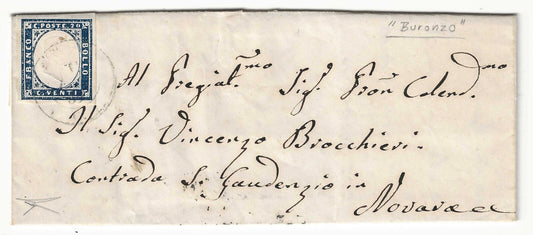 "Buronzo"
C. POSTE 20
FRANCO
BOLLO
C. VENTI
Al Pregiat.mo Sig. Pron Colend.mo
Il Sig. Vincenzo Brocchieri.
Contrada S. Gaudenzio in
Novara